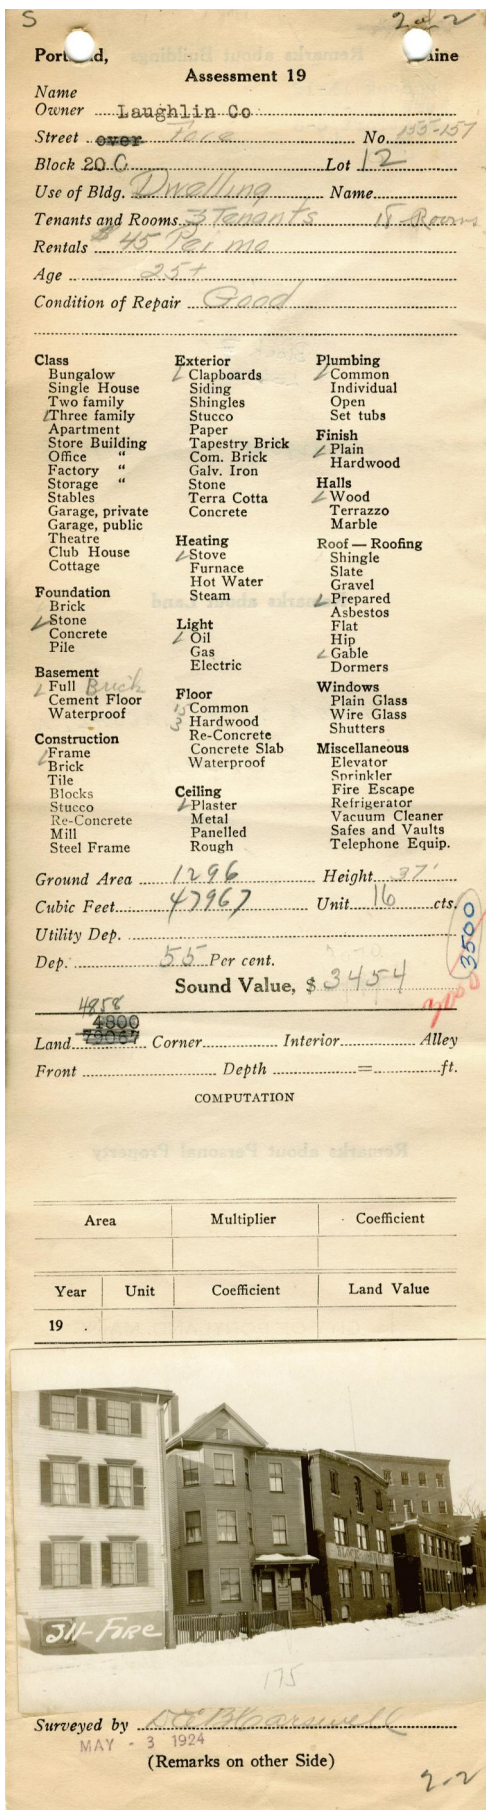 S 2 of 2
Portland, Maine
Assessment 19
Name
Owner Laughlin Co
Street over Fore No. 155-157
Block 20 C Lot 12
Use of Bldg. Dwelling Name
Tenants and Rooms 3 Tenants 18 Rooms
Rentals $45 Per mo
Age 25+
Condition of Repair Good
Class
Bungalow
Single House
Two family
Three family
Apartment
Store Building
Office "
Factory "
Storage "
Stables
Garage, private
Garage, public
Theatre
Club House
Cottage
Foundation
Brick
Stone
Concrete
Pile
Basement
Full Brick
Cement Floor
Waterproof
Construction
Frame
Brick
Tile
Blocks
Stucco
Re-Concrete
Mill
Steel Frame
Exterior
Clapboards
Siding
Shingles
Stucco
Paper
Tapestry Brick
Com. Brick
Galv. Iron
Stone
Terra Cotta
Concrete
Heating
Stove
Furnace
Hot Water
Steam
Light
Oil
Gas
Electric
Floor
15 Common
3 Hardwood
Re-Concrete
Concrete Slab
Waterproof
Ceiling
Plaster
Metal
Panelled
Rough
Plumbing
Common
Individual
Open
Set tubs
Finish
Plain
Hardwood
Halls
Wood
Terrazzo
Marble
Roof — Roofing
Shingle
Slate
Gravel
Prepared
Asbestos
Flat
Hip
Gable
Dormers
Windows
Plain Glass
Wire Glass
Shutters
Miscellaneous
Elevator
Sprinkler
Fire Escape
Refrigerator
Vacuum Cleaner
Safes and Vaults
Telephone Equip.
Ground Area 1296 Height 37'
Cubic Feet 47967 Unit 16 cts.
Utility Dep.
Dep. 55 Per cent.
Sound Value, $ 3454
3500
4858
4800
Land Corner Interior Alley
Front Depth = ft.
COMPUTATION
Area Multiplier Coefficient
Year Unit Coefficient Land Value
19 .
311-FIRE
175
Surveyed by
MAY - 3 1924
(Remarks on other Side)
2-2